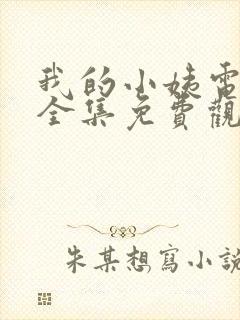 我的小姨電
全集免費觀
朱某想寫小說